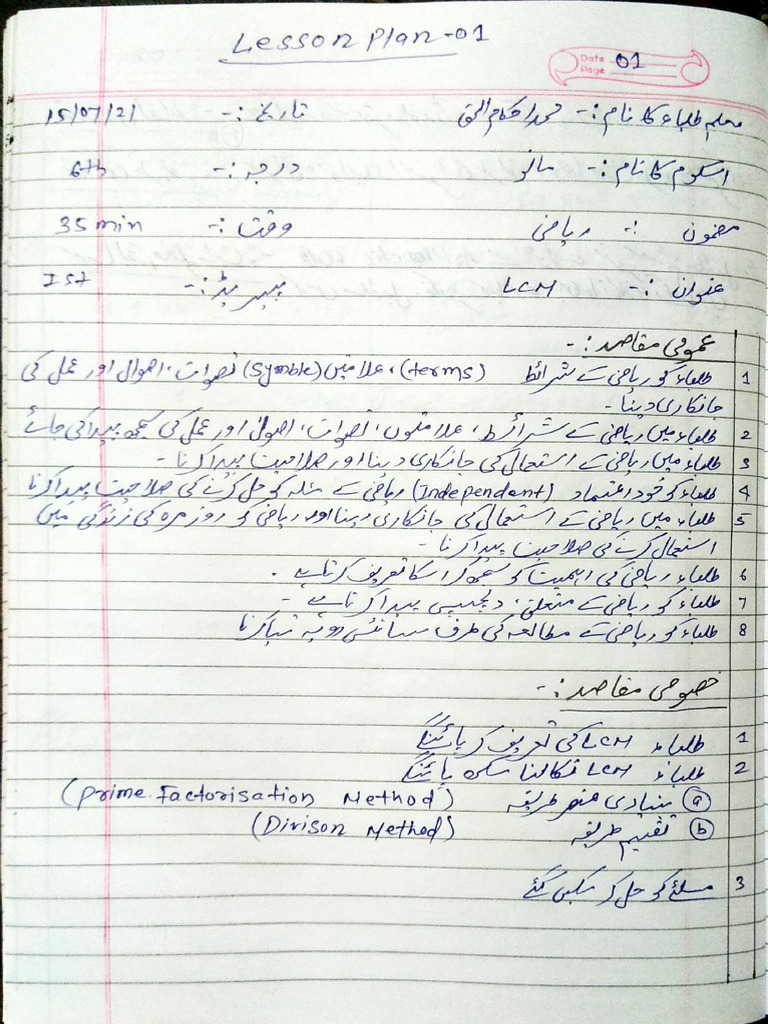 Lesson Plan-01
Date
Page 01
معلم طلباء کا نام :- محمد احکام الحق تاریخ :- 15/07/21
اسکول کا نام :- مانو درجہ :- 6th
مضمون :- ریاضی وقت :- 35 min
عنوان :- LCM پیریڈ :- Ist
عمومی مقاصد :-
1 طلباء کو ریاضی کے شرائط (terms)، علامتیں (Symble) تصورات، اصول اور عمل کی
جانکاری دینا -
2 طلباء میں ریاضی کے شرائط، علامتوں، تصورات، اصول اور عمل کی سمجھ پیدا کی جائے
3 طلباء میں ریاضی کے استعمال کی جانکاری دینا اور صلاحیت پیدا کرنا -
4 طلباء کو خود اعتماد (Independent) ریاضی کے مسئلہ کو حل کرنے کی صلاحیت پیدا کرنا
5 طلباء میں ریاضی کے استعمال کی جانکاری دینا اور ریاضی کو روز مرہ کی زندگی میں
استعمال کرنے کی صلاحیت پیدا کرنا -
6 طلباء ریاضی کی اہمیت کو سمجھ کر اسکا تعریف کرتا ہے .
7 طلباء کو ریاضی کے متعلق، دلچسپی پیدا کرتا ہے -
8 طلباء کو ریاضی کے مطالعہ کی طرف سائنسی رویہ کرنا
خصوصی مقاصد :-
1 طلباء LCM کی تعریف کر پائینگے
2 طلباء LCM نکالنا سکھ پائینگے
(a) بنیادی طریقہ (Prime Factorisation Method)
(b) تقسیم طریقہ (Divison Method)
3 مسئلے کو حل کر